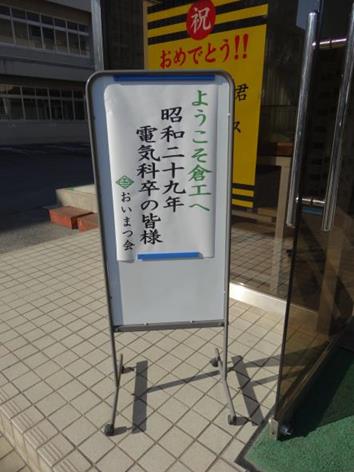 ようこそ倉工へ
昭和二十九年
電気科卒の皆様
おいまつ会
祝
おめでとう!!
君